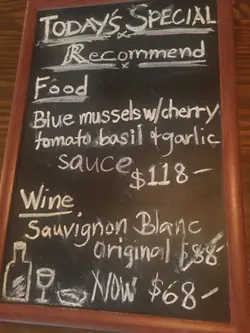 TODAY'S SPECIAL
Recommend
Food
Blue mussels w/cherry
tomato basil & garlic
sauce
$118-
Wine
Sauvignon Blanc
original $88-
NOW $68-